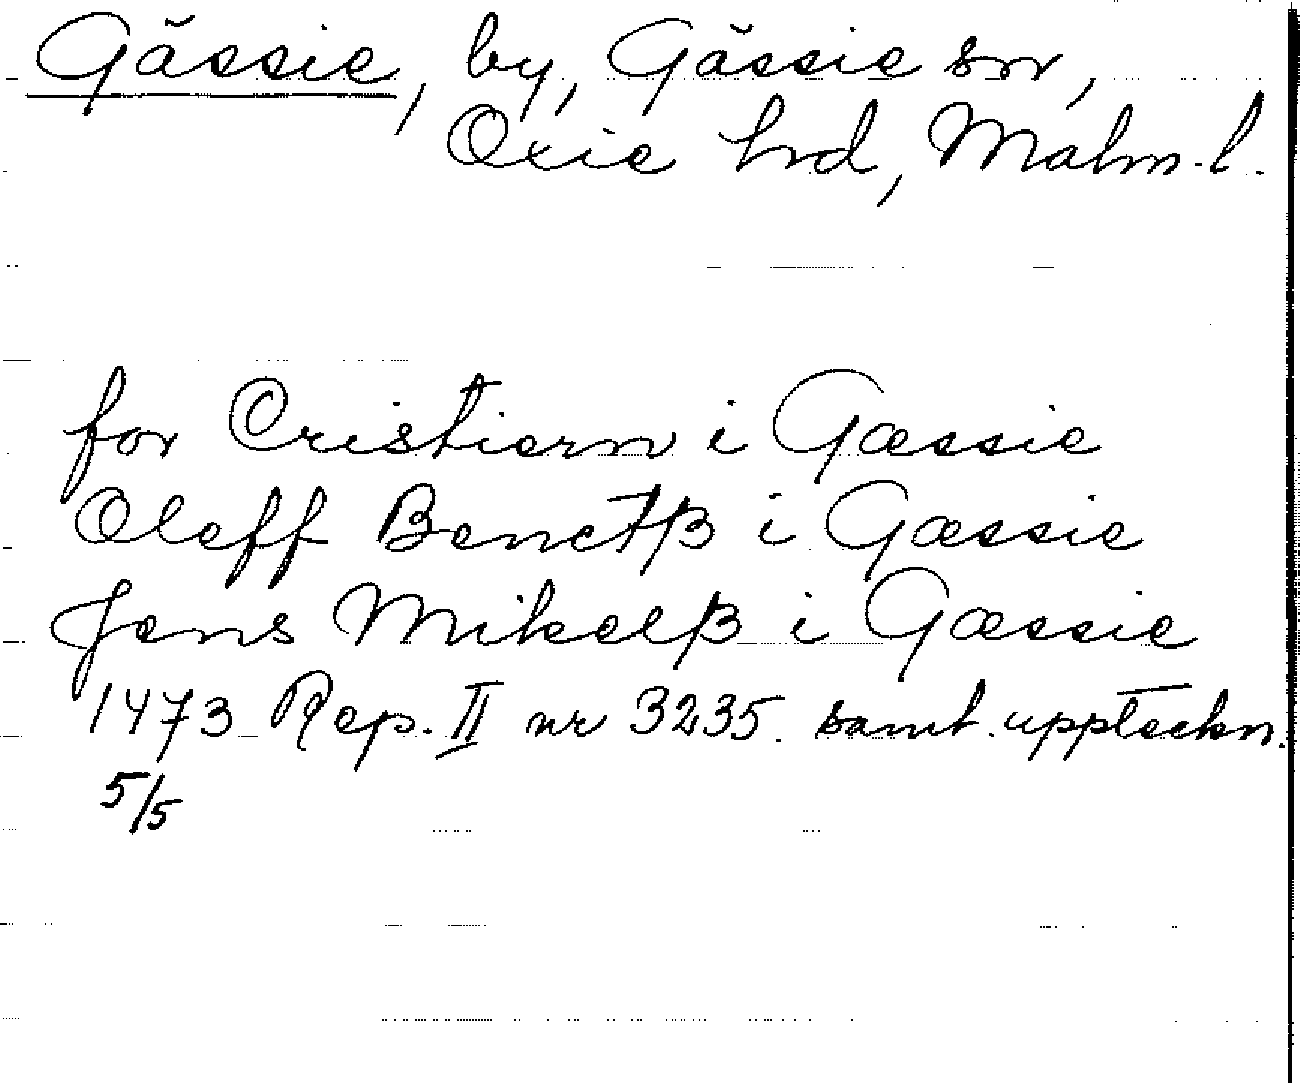 Gässie, by, Gässie sn,
Oxie hrd, Malm. l.
for Cristiern i Gæssie
Oleff Benctß i Gæssie
Jens Mikelß i Gæssie
1473 Rep. II nr 3235. samt. uppteckn.
5/5